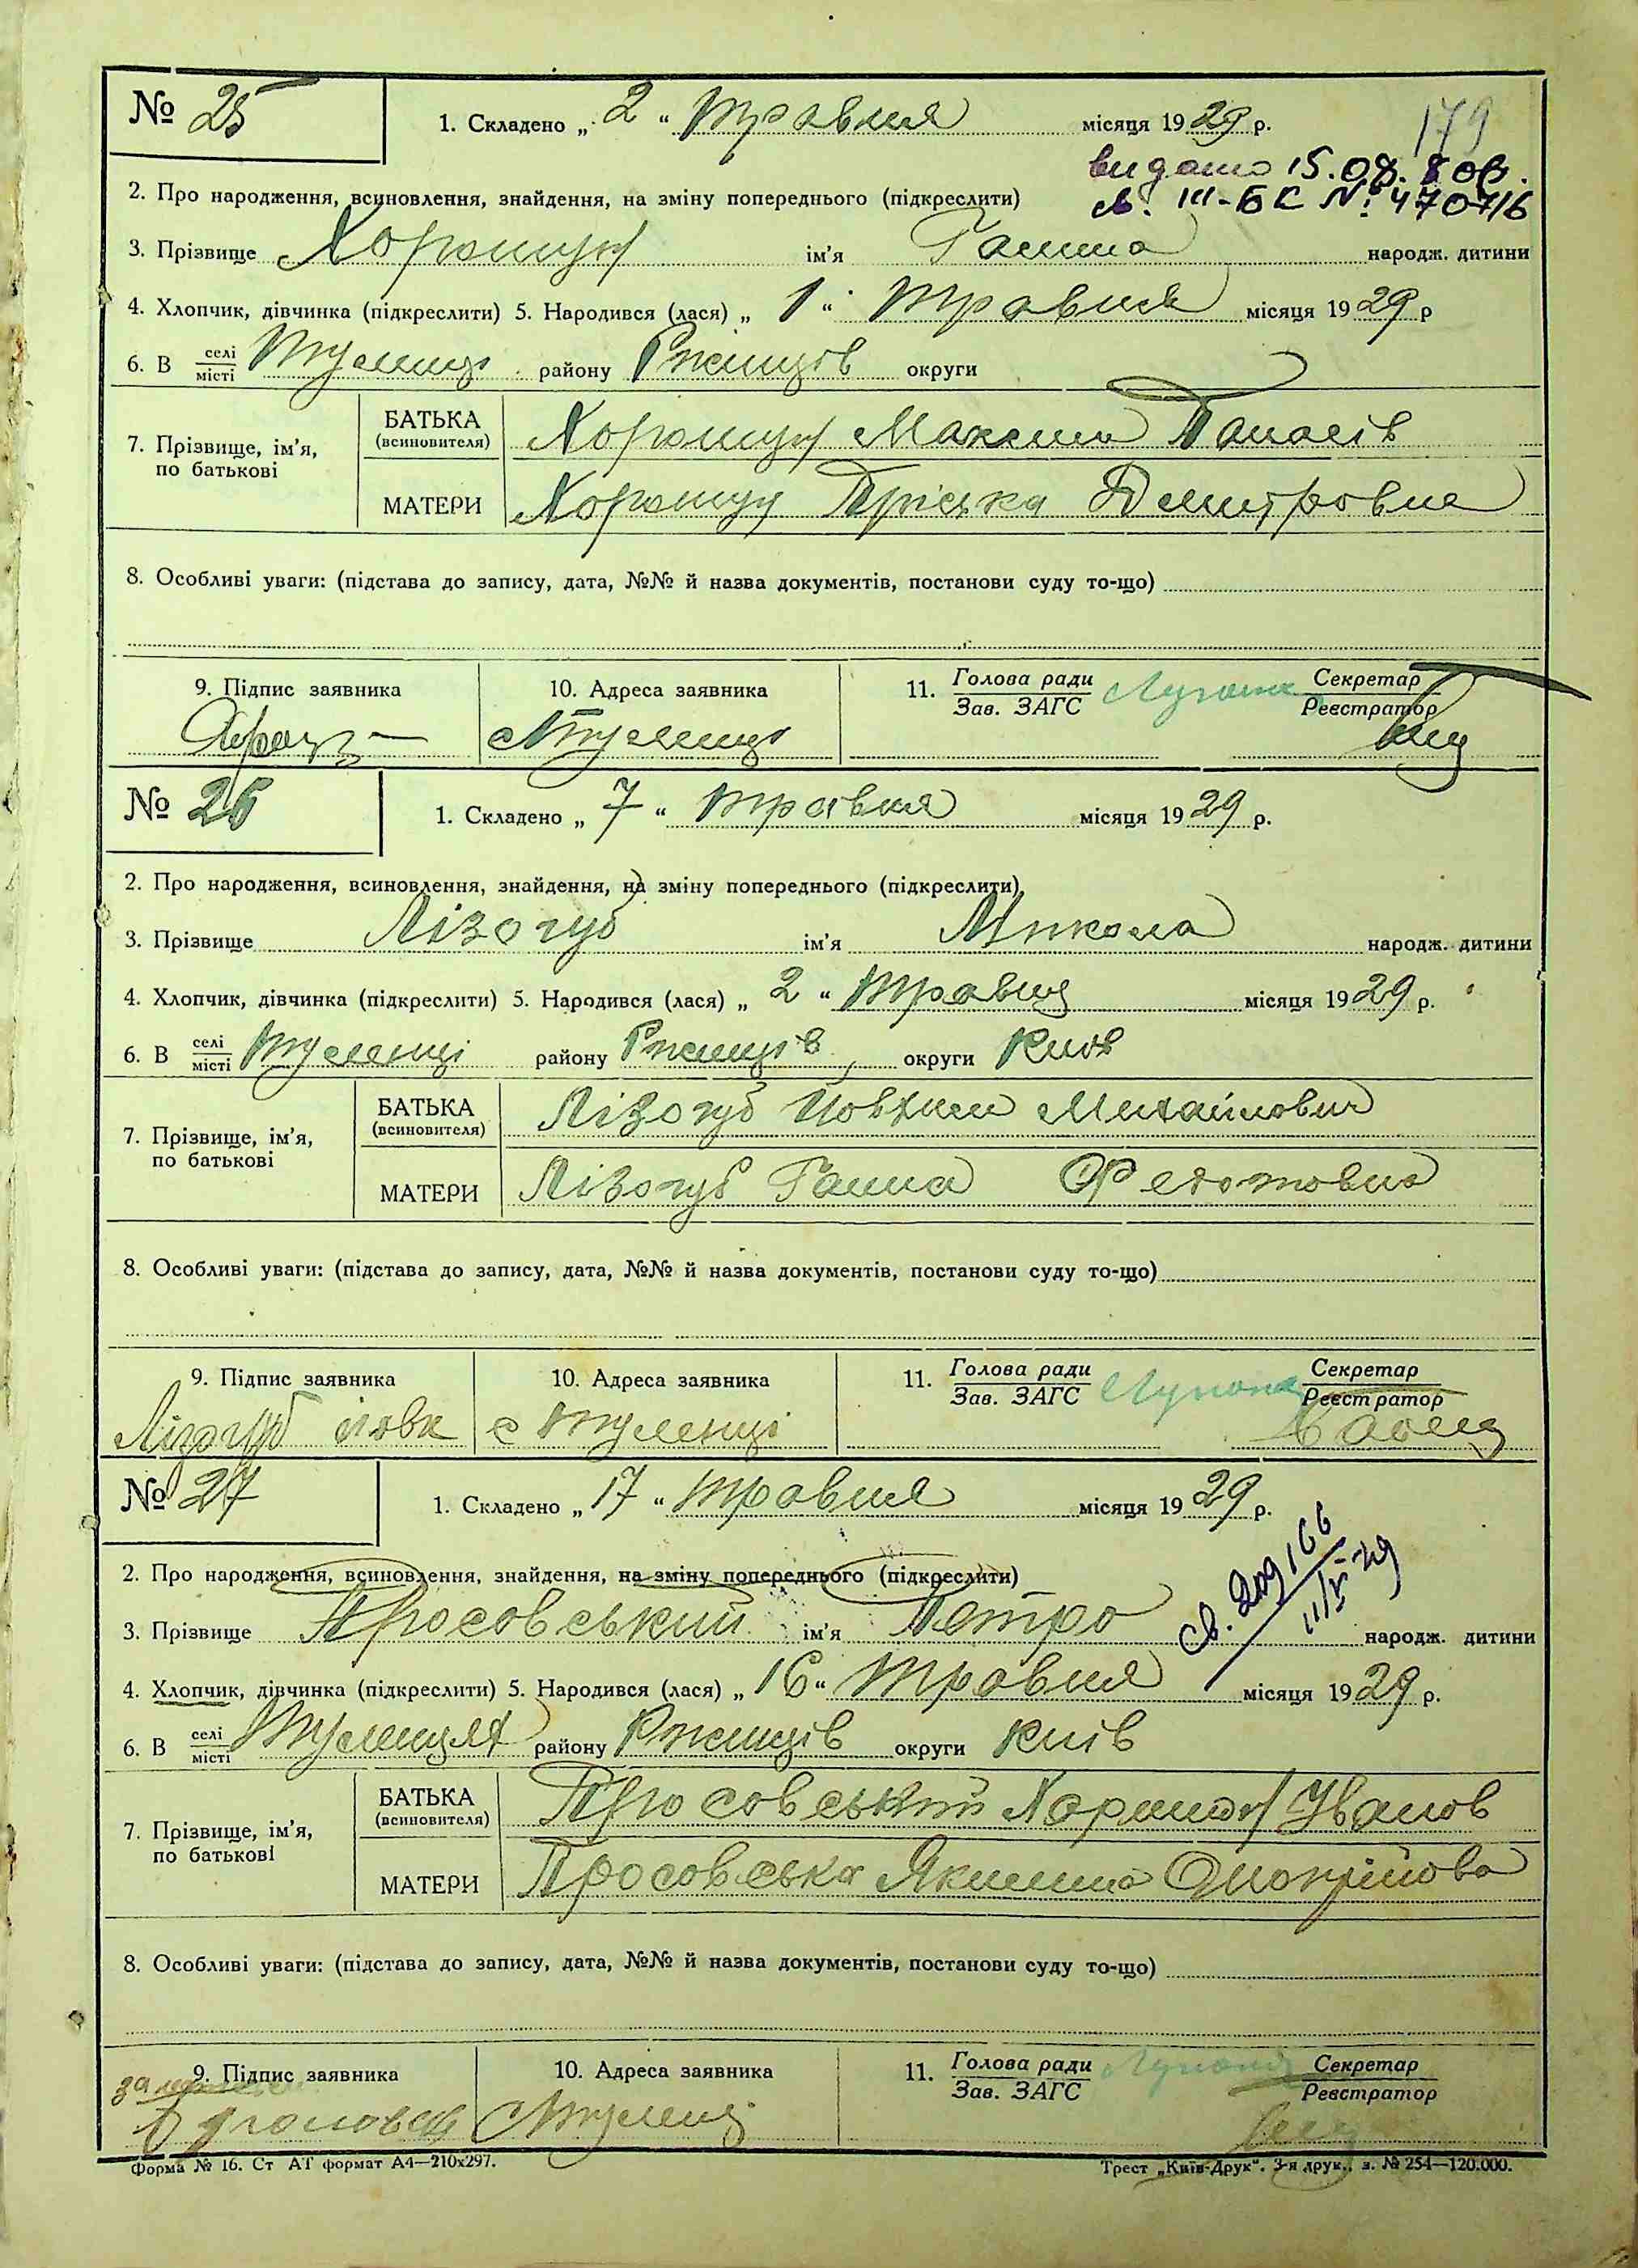 179
№ 25 1. Складено „ 2 “ травня місяця 1929 р.
видано 15.07.80р.
2. Про народження, всиновлення, знайдення, на зміну попереднього (підкреслити)
св. III-БК №: 470716
3. Прізвище Хоромщух ім'я Ганна народж. дитини
4. Хлопчик, дівчинка (підкреслити) 5. Народився (лася) „ 1 “ травня місяця 1929 р
6. В селі/місті Тулинці району Ржищів округи
7. Прізвище, ім'я, по батькові
БАТЬКА (всиновителя) Максим Панасів
МАТЕРИ Пріська Дмитровна
8. Особливі уваги: (підстава до запису, дата, №№ й назва документів, постанови суду то-що)
9. Підпис заявника 10. Адреса заявника 11. Голова ради / Зав. ЗАГС Секретар / Реєстратор
с Тулинці
№ 26 1. Складено „ 7 “ травня місяця 1929 р.
2. Про народження, всиновлення, знайдення, на зміну попереднього (підкреслити)
3. Прізвище Лізогуб ім'я Микола народж. дитини
4. Хлопчик, дівчинка (підкреслити) 5. Народився (лася) „ 2 “ травня місяця 1929 р.
6. В селі/місті Тулинці району Ржищів округи Київ
7. Прізвище, ім'я, по батькові
БАТЬКА (всиновителя) Лізогуб Йовхим Михайлович
МАТЕРИ Лізогуб Ганна Федотовна
8. Особливі уваги: (підстава до запису, дата, №№ й назва документів, постанови суду то-що)
9. Підпис заявника 10. Адреса заявника 11. Голова ради / Зав. ЗАГС Секретар / Реєстратор
Лізогуб йовх с Тулинці
№ 27 1. Складено „ 17 “ травня місяця 1929 р.
2. Про народження, всиновлення, знайдення, на зміну попереднього (підкреслити)
св. 209166
11/V-29
3. Прізвище Просовський ім'я Петро народж. дитини
4. Хлопчик, дівчинка (підкреслити) 5. Народився (лася) „ 16 “ травня місяця 1929 р.
6. В селі/місті Тулинцях району Ржищів округи Київ
7. Прізвище, ім'я, по батькові
БАТЬКА (всиновителя) Просовський Іванов
МАТЕРИ Просовська Якилина
8. Особливі уваги: (підстава до запису, дата, №№ й назва документів, постанови суду то-що)
9. Підпис заявника 10. Адреса заявника 11. Голова ради / Зав. ЗАГС Секретар / Реєстратор
с Тулинці
Форма № 16. Ст АТ формат А4—210х297. Трест „Київ-Друк“. 3-я друк., з. № 254—120.000.